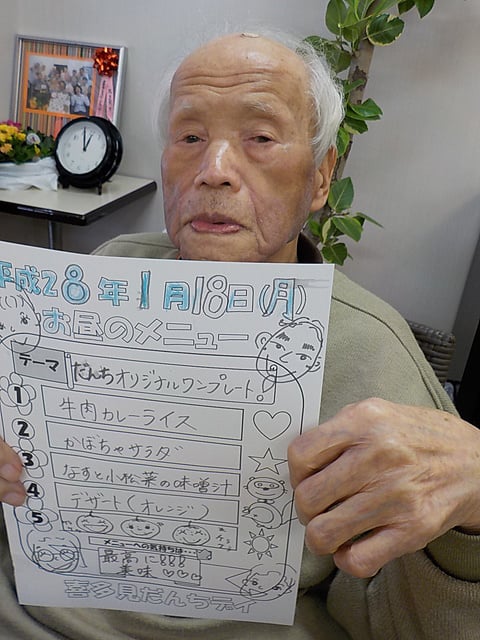 平成28年1月18日(月)
お昼のメニュー
テーマ だんちオリジナルワンプレート!
1 牛肉カレーライス
2 かぼちゃサラダ
3 なすと小松菜の味噌汁
4 デザート(オレンジ)
5
メニューへの気持ちは…
最高に!!!
美味♡♡♡
喜多見だんちデイ